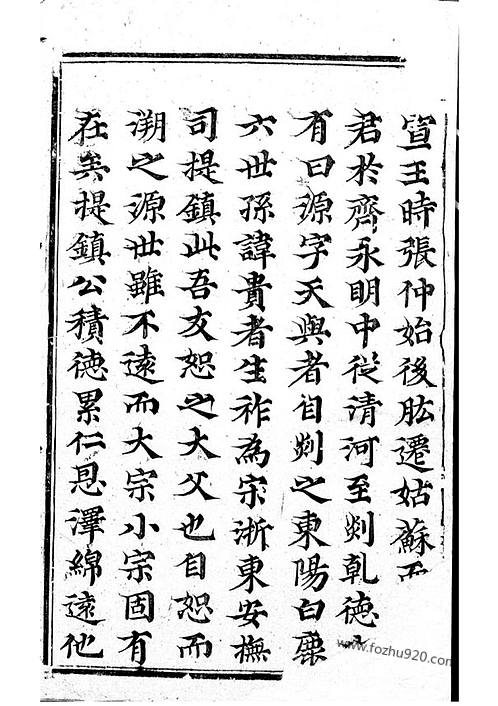 宣王時張仲始後肱遷姑蘇而
君於齊永明中從清河至剡乾德
有曰源字天與者自剡之東陽白鹿
六世孫諱貴者生祚為宗浙東安撫
司提鎮此吾友恕之大父也自恕而
溯之源世雖不遠而大宗小宗固有
在矣提鎮公積德累仁恩澤綿遠他
www.fozhu920.com